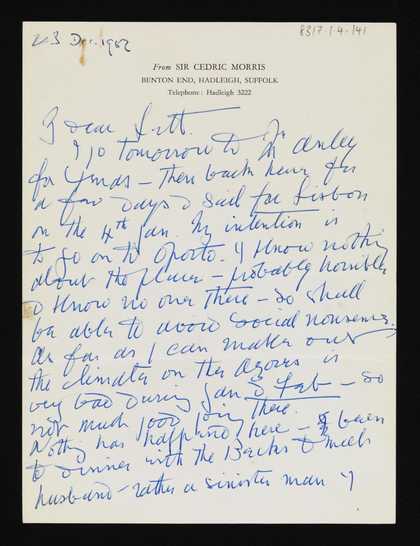 8317.1.4.141
23 Dec. 1952
From SIR CEDRIC MORRIS
BENTON END, HADLEIGH, SUFFOLK
Telephone: Hadleigh 3222
dear Lett.
I go tomorrow to
for Xmas – then back here for
a few days & sail for Lisbon
on the 4th Jan. My intention is
to go on to Oporto. I know nothing
about the place – probably horrible
& know no one there – so shall
be able to avoid social nonsense.
As far as I can make out
the climate on the Azores is
very bad during Jan & Feb – so
not much good going there.
Nothing has happened here – been
to dinner with the &
husband – rather a sinister man I